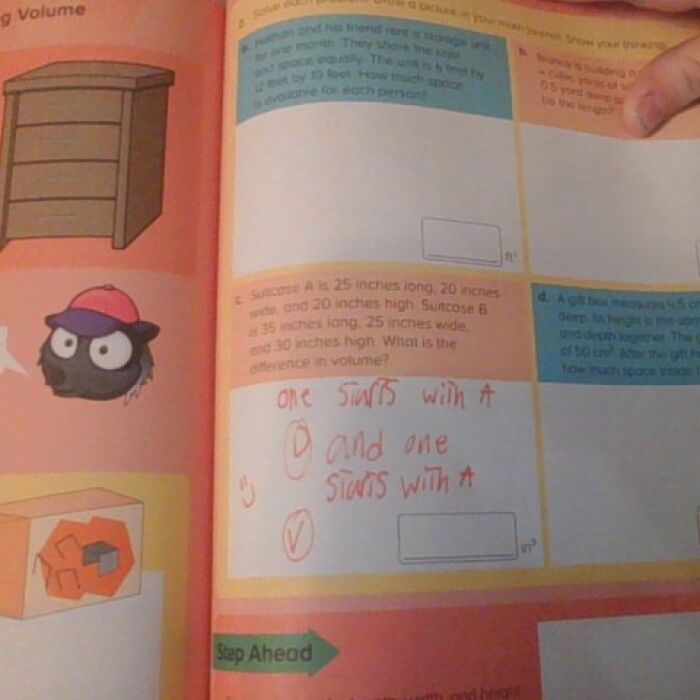 g Volume
2. Solve each problem. Draw a picture in your math journal. Show your thinking.
a. Nathan and his friend rent a storage unit
for one month. They share the cost
and space equally. The unit is 6 feet by
12 feet by 10 feet. How much space
is available for each person?
ft³
b. Bianca is building a
cubic yards of
0.5 yard deep
be the length?
c. Suitcase A is 25 inches long, 20 inches
wide, and 20 inches high. Suitcase B
is 35 inches long, 25 inches wide,
and 30 inches high. What is the
difference in volume?
one starts with A
D and one
starts with A
V
in³
d. A gift box measures 4.5
deep. Its height is the
and depth together. The
of 50 cm³. After the gift
how much space inside
Step Ahead
width, and height